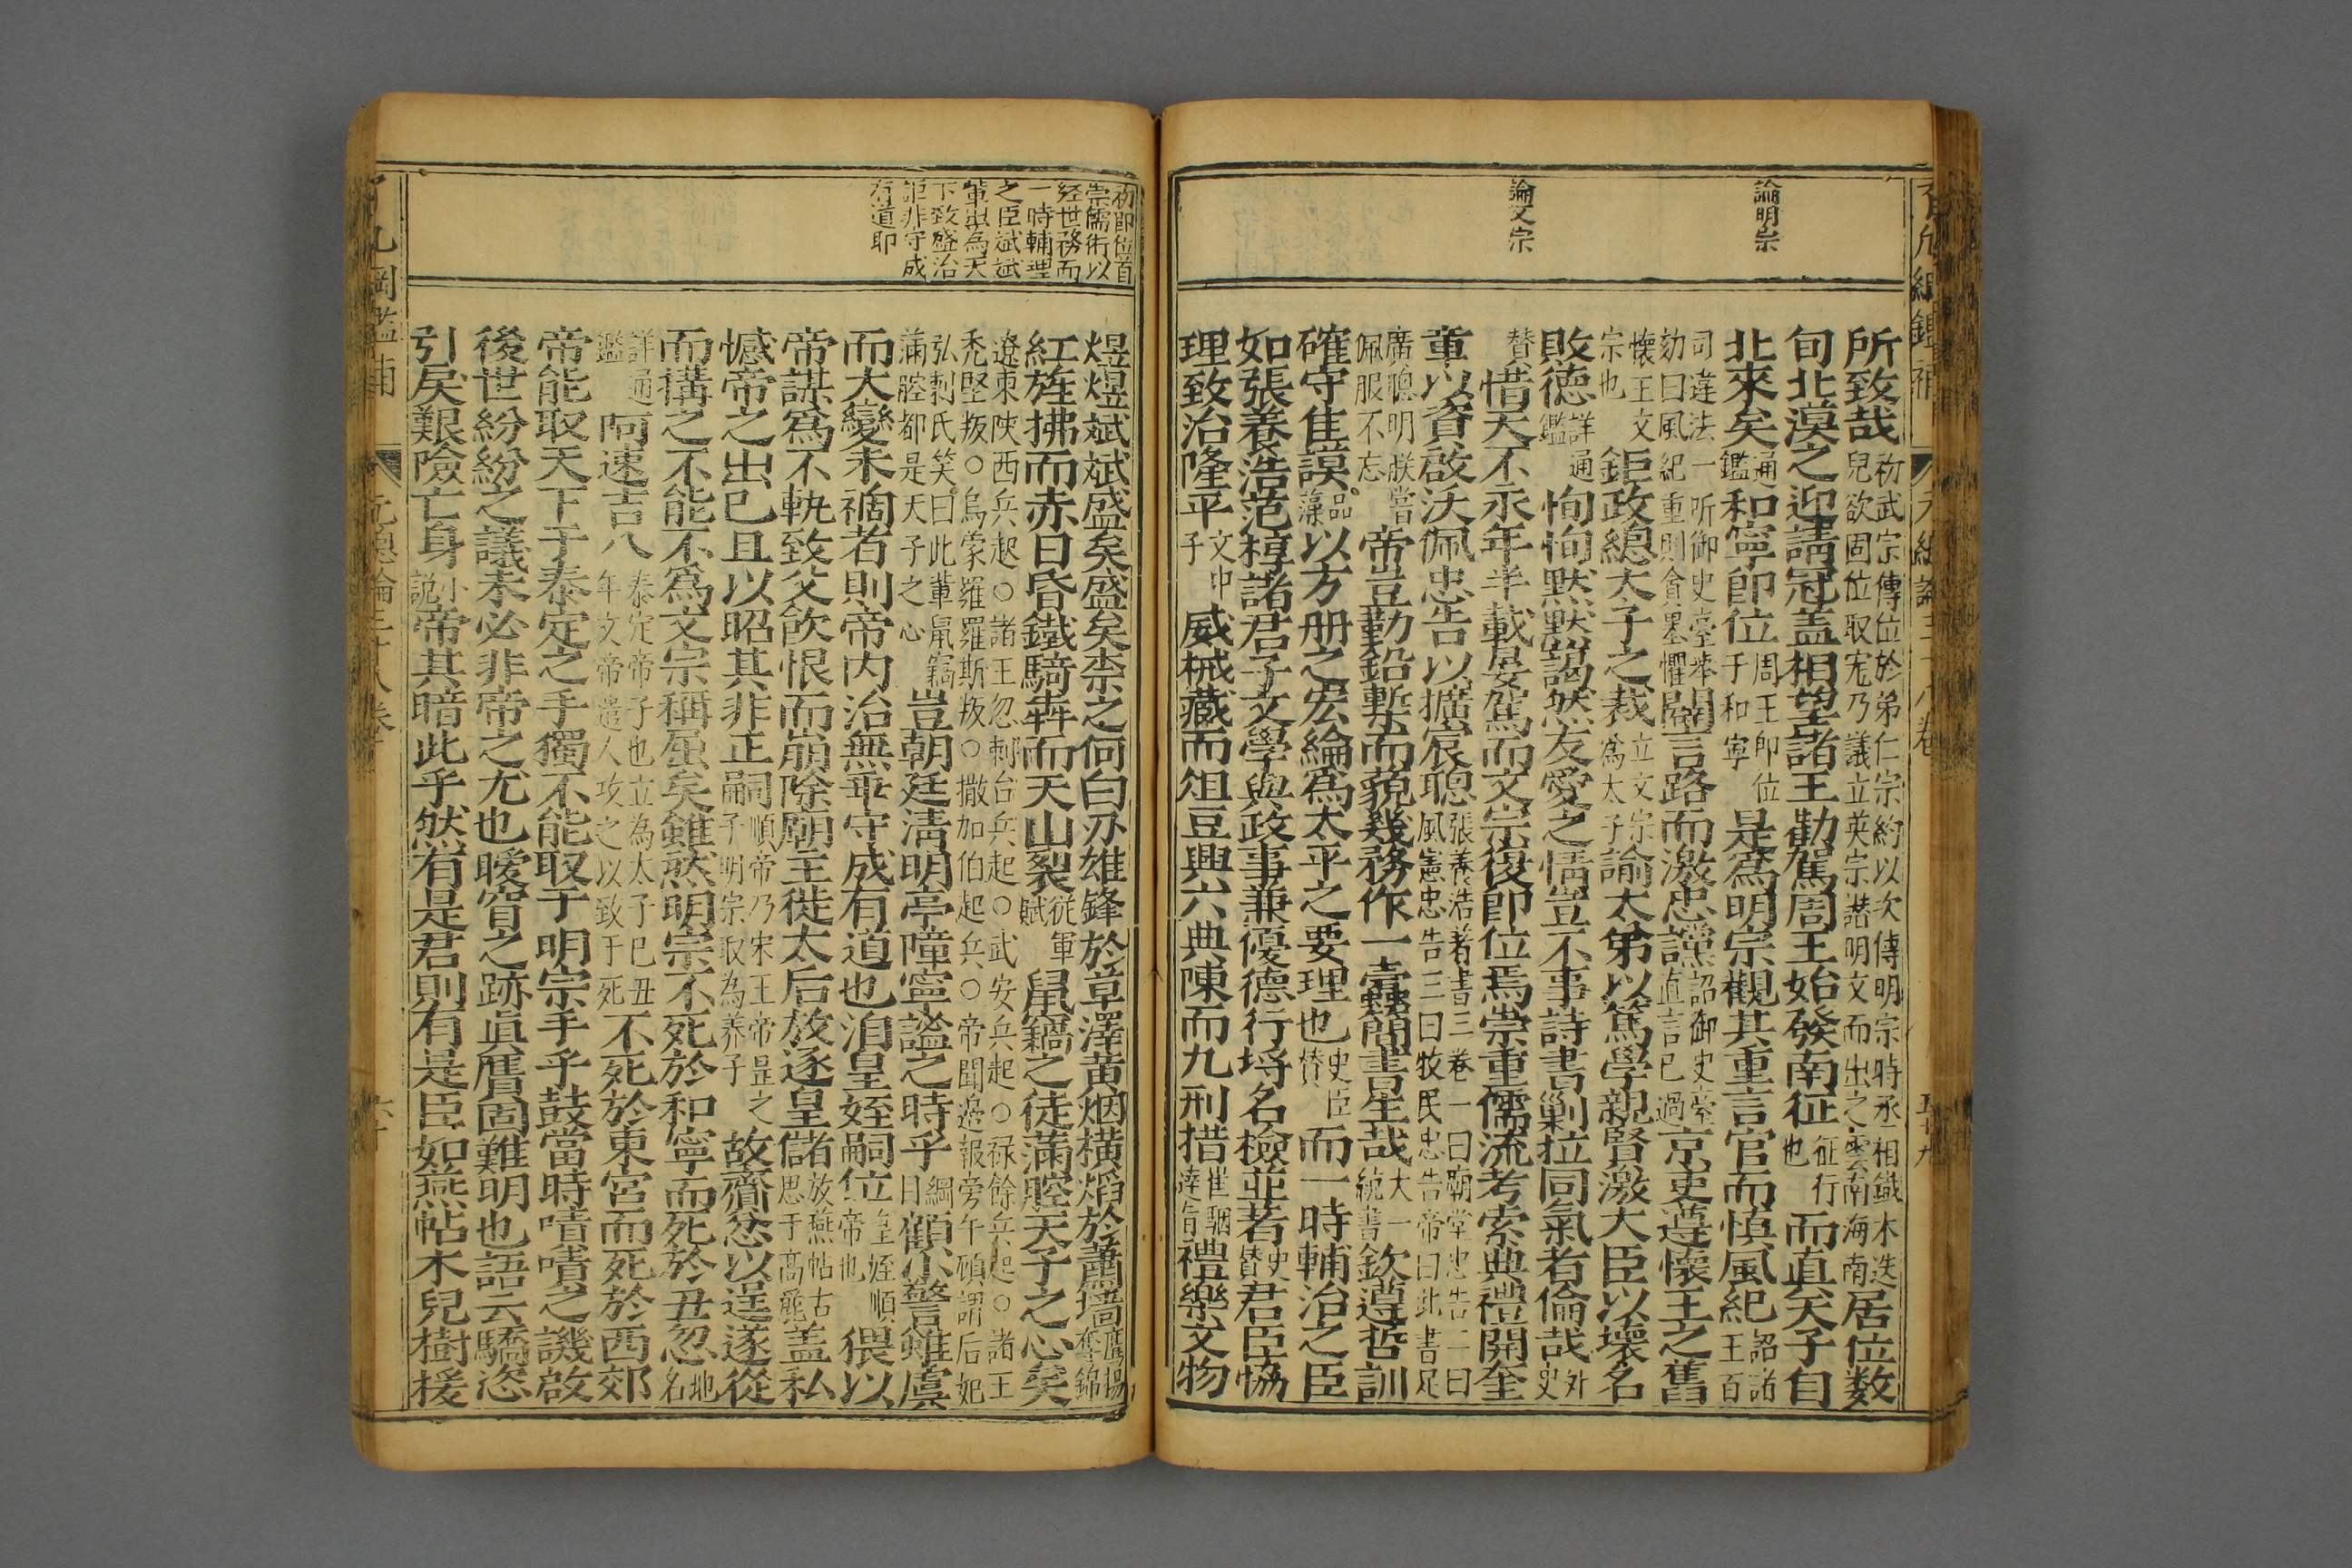 論明宗
論文宗
所致哉初武宗傳位於弟仁宗約以次傳明宗時丞相鐵木迭兒欲固位取寵乃議立英宗譛明文而出之雲南海南居位数
旬北漠之迎請冠盖相望諸王勸駕周王始發南征征行也而真天子自
北來矣通鑑和寧卽位周王卽位于和寧是爲明宗觀其重言官而慎風紀詔諸王百
司違法一所御史臺劾曰風紀重則貪墨懼闢言路而激忠讜詔御史臺直言已過京吏遵懷王之舊
懷王文宗也鉅政總太子之裁立文宗爲太子諭太弟以篤學親賢激大臣以壞名
敗德詳通鑑恂恂默默藹然友愛之情豈不事詩書剿拉同氣者倫哉外史
賛惜天不永年半載晏駕而文宗復卽位焉崇重儒流考索典禮開奎
章以資啟沃佩忠告以擴宸聰張養浩著書三卷一曰廟堂忠告二曰風憲忠告三曰牧民忠告帝曰此書足
廣聰明朕當佩服不忘帝豈勤鉛槧而藐幾務作一蠹簡書生哉大一統書欽遵哲訓
確守隹謨品藻以方册之宏綸爲太平之要理也史臣賛而一時輔治之臣
如張養浩范梈諸君子文學與政事兼優德行埒名檢並著史賛君臣恊
理致治隆平文中子威械藏而俎豆興六典陳而九刑措崔駰達旨禮樂文物
初卽位首
崇儒術以
经世務而
一時輔理
之臣斌斌
軰出為天
下致盛治
詎非守成
有道耶
煜煜斌斌盛矣盛矣柰之何白刃雄鋒於草澤黄烟横熖於蕭墻鷹揚奪錦
紅旌拂而赤日昏鐵騎犇而天山裂從軍賦鼠竊之徒滿腔天子之心矣
遼東陜西兵起○諸王忽剌台兵起○武安兵起○禄餘兵起○諸王秃堅叛○烏蒙羅羅斯叛○撒加伯起兵○帝聞邉報旁午頋謂后妃
弘剌氏笑曰此軰鼠竊滿腔都是天子之心豈朝廷淸明亭幢寧謐之時乎綱目顧小警雖虞
而大變未禍者則帝内治無乖守成有道也洎皇姪嗣位皇姪順帝也猥以
帝謀爲不軌致父飲恨而崩除廟主徙太后放逐皇儲放燕帖古思于高麗盖私
憾帝之出巳且以昭其非正嗣順帝乃宋王帝㬎之子明宗取為养子故齎忿以逞遂從
而搆之不能不爲文宗稱屈矣雖然明宗不死於和寧而死於丑忽地名
詳通鑑阿速吉八泰定帝子也立為太子已丑年文帝遣人攻之以致于死不死於東宮而死於西郊
帝能取天下于泰定之手獨不能取于明宗手乎鼓當時嘖嘖之譏啟
後世紛紛之議未必非帝之尤也曖昧之跡眞贋固難明也語云驕恣
引戾艱險亡身小說帝其暗此乎然有是君則有是臣如燕帖木兒樹援